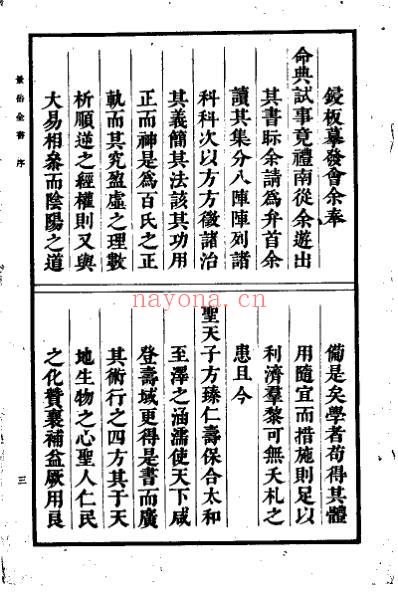 景岳全書 序
鋟板摹發會余奉
命典試事竟禮南從余遊出
其書眎余請為弁首余
讀其集分八陣陣列諸
科科次以方方徵諸治
其義簡其法該其功用
正而神是為百氏之正
軌而其究盈虛之理數
析順逆之經權則又與
大易相參而陰陽之道
備是矣學者苟得其體
用隨宜而措施則足以
利濟羣黎可無夭札之
患且今
聖天子方臻仁壽保合太和
至澤之涵濡使天下咸
登壽域更得是書而廣
其術行之四方其于天
地生物之心聖人仁民
之化贊襄補益厥用良
三
nayona.cn